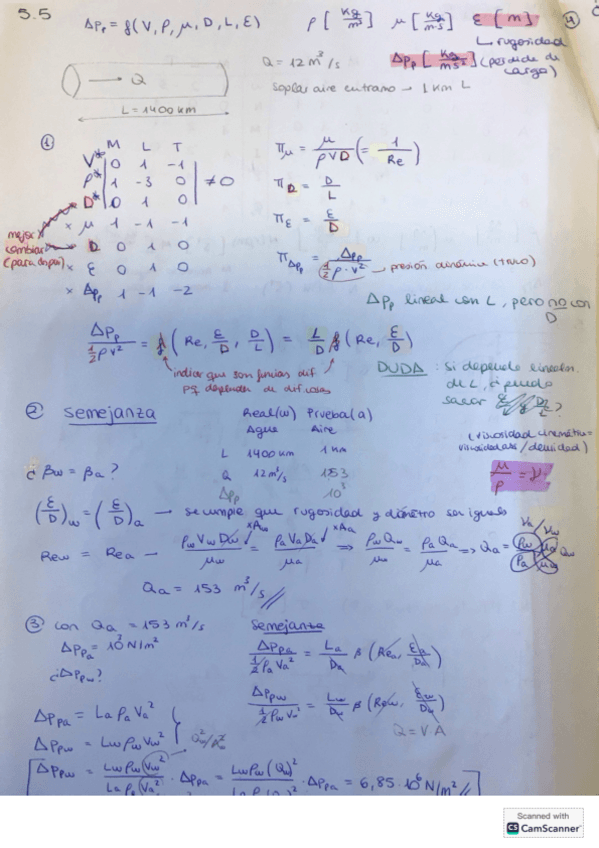 5.5
ΔPp = f(V, ρ, μ, D, L, ε)    ρ [kg/m³]    μ [kg/ms]    ε [m]
↳ rugosidad
ΔPp [kg/ms²] (pérdida de carga)
→ Q
L = 1400 km
Q = 12 m³/s
Soplar aire en tramo → 1 km L
①
M L T
V* 0 1 -1
ρ* 1 -3 0    ≠ 0
D* 0 1 0
x μ 1 -1 -1
D 0 1 0
x ε 0 1 0
x ΔPp 1 -1 -2
mejor cambiar
Πμ = μ/ρVD (= 1/Re)
ΠD = D/L
Πε = ε/D
ΠΔPp = ΔPp / ½ρ·V² → presión dinámica (truco)
ΔPp lineal con L, pero no con D
ΔPp / ½ρV² = f (Re, ε/D, D/L) = L/D f (Re, ε/D)
indicar que son funcias dif.
pq dependen de dif. cosas
DUDA : Si depende linealm. de L, ¿
puedo sacar
② Semejanza
Real(w) Prueba(a)
Agua Aire
L 1400 km 1 km
Q 12 m³/s 153
ΔPp 10³
(viscosidad cinemática = viscosidad / densidad)
μ/ρ = ν
¿ βw = βa ?
(ε/D)w = (ε/D)a → se cumple que rugosidad y diámetro son iguales
Rew = Rea → ρw Vw Dw / μw = ρa Va Da / μa ⇒ ρw Qw / μw = ρa Qa / μa ⇒ Qa =
Qa = 153 m³/s
③ con Qa = 153 m³/s
ΔPpa = 10³ N/m²
¿ΔPpw?
Semejanza
ΔPpa / ½ρa Va² = La/Da β (Rea, εa/Da)
ΔPpw / ½ρw Vw² = Lw/Dw β (Rew, εw/Dw)
Q = V·A
ΔPpa = La ρa Va²
ΔPpw = Lw ρw Vw²
ΔPpw = Lw ρw Vw² / La ρa Va² · ΔPpa = Lw ρw (Qw)² / · ΔPpa = 6,85·10⁶ N/m²
Scanned with
CS CamScanner